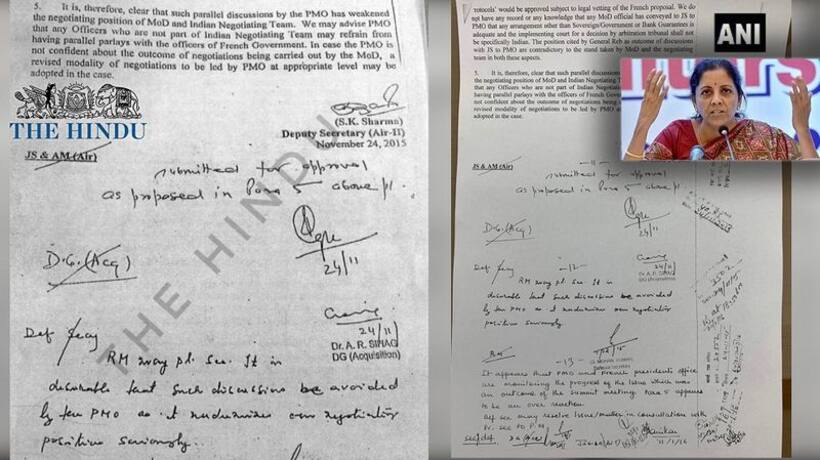 5. It is, therefore, clear that such parallel discussions by the PMO has weakened
the negotiating position of MoD and Indian Negotiating Team. We may advise PMO
that any Officers who are not part of Indian Negotiating Team may refrain from
having parallel parlays with the officers of French Government. In case the PMO is
not confident about the outcome of negotiations being carried out by the MoD, a
revised modality of negotiations to be led by PMO at appropriate level may be
adopted in the case.
THE HINDU
(S.K. Sharma)
Deputy Secretary (Air-II)
November 24, 2015
JS & AM (Air)
submitted for approval
as proposed in Para 5 above pl.
24/11
D.G. (Acq)
24/11
Dr. A.R. SIHAG
DG (Acquisition)
Def Secy
RM may pl. see. It is
desirable that such discussions be avoided
by the PMO as it undermines our negotiating
position seriously.
THE HINDU
protocols' would be approved subject to legal vetting of the French proposal. We do
not have any record or any knowledge that any MoD official has conveyed to JS to
PMO that any arrangement other than Sovereign/Government or Bank Guarantees is
adequate and the implementing court for a decision by arbitration tribunal shall not
be specifically Indian. The position cited by General Reb as outcome of discussions
with JS to PMO are contradictory to the stand taken by MoD and the negotiating
team in both these aspects.
5. It is, therefore, clear that such parallel discussions
the negotiating position of MoD and Indian Negotiating
that any Officers who are not part of Indian Negotiating
having parallel parlays with the officers of French
not confident about the outcome of negotiations being
revised modality of negotiations to be led by PMO
adopted in the case.
ANI
JS & AM (Air)
-11-
submitted for approval
as proposed in Para 5 above pl.
24/11
D.G. (Acq)
24/11
Dr. A.R. SIHAG
DG (Acquisition)
Def Secy
-12-
RM may pl. see. It is
desirable that such discussions be avoided
by the PMO as it undermines our negotiating
position seriously.
G. MOHAN KUMAR
RM
-13-
It appears that PMO and French president's office
are monitoring the progress of the issue which was
an outcome of the summit meeting. Para 5 appears
to be an over reaction.
Def sec may resolve issue/matter in consultation with
Pr. sec to P.M
secy def
11/1/16